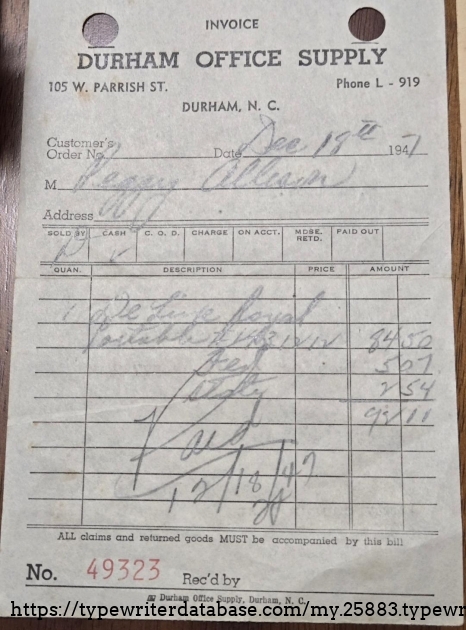 INVOICE
DURHAM OFFICE SUPPLY
105 W. PARRISH ST. Phone L - 919
DURHAM, N. C.
Customer's
Order No. Date Dec 18th 1947
M Peggy Allison
Address
SOLD BY CASH C. O. D. CHARGE ON ACCT. MDSE. RETD. PAID OUT
QUAN. DESCRIPTION PRICE AMOUNT
1 Royal
Portable 84 50
Fed 5 07
State 2 54
92 11
Pd
12/18/47
ALL claims and returned goods MUST be accompanied by this bill
No. 49323 Rec'd by
Durham Office Supply, Durham, N. C.
https://typewriterdatabase.com/my.25883.typewr